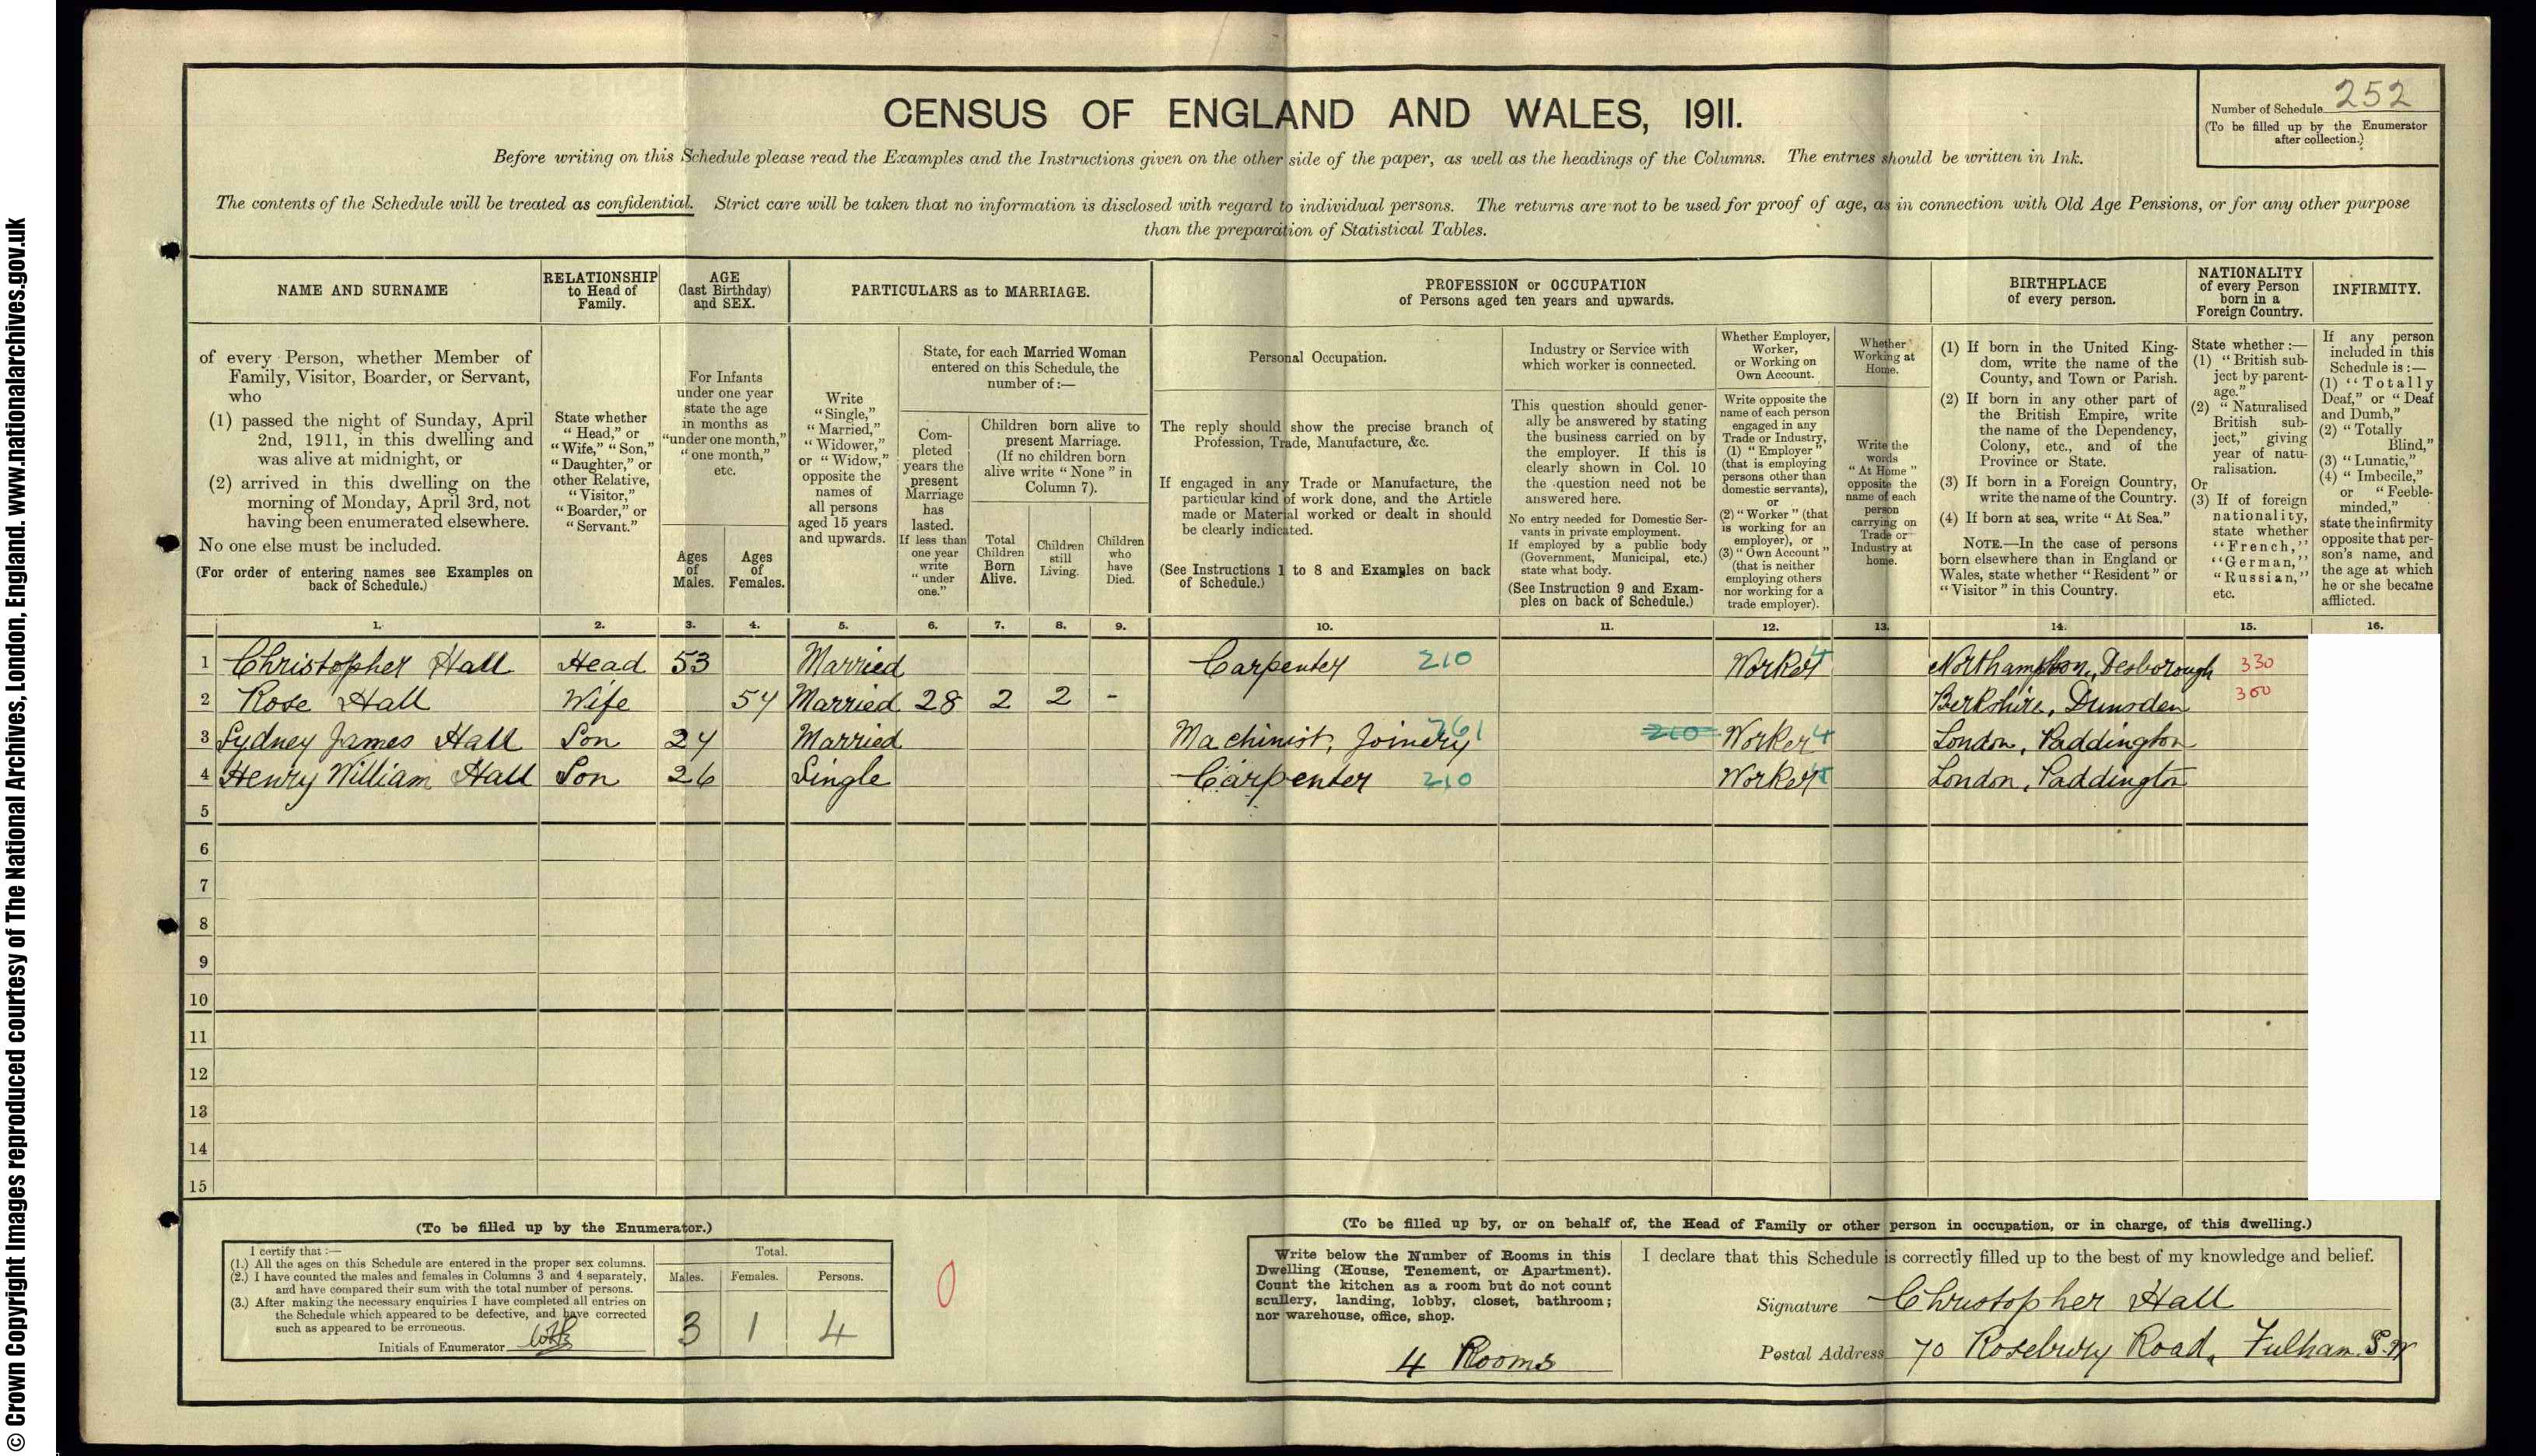 © Crown Copyright Images reproduced courtesy of The National Archives, London, England. www.nationalarchives.gov.uk
CENSUS OF ENGLAND AND WALES, 1911.
Number of Schedule 252
(To be filled up by the Enumerator
after collection.)
Before writing on this Schedule please read the Examples and the Instructions given on the other side of the paper, as well as the headings of the Columns. The entries should be written in Ink.
The contents of the Schedule will be treated as confidential. Strict care will be taken that no information is disclosed with regard to individual persons. The returns are not to be used for proof of age, as in connection with Old Age Pensions, or for any other purpose
than the preparation of Statistical Tables.
NAME AND SURNAME
of every Person, whether Member of
Family, Visitor, Boarder, or Servant,
who
(1) passed the night of Sunday, April
2nd, 1911, in this dwelling and
was alive at midnight, or
(2) arrived in this dwelling on the
morning of Monday, April 3rd, not
having been enumerated elsewhere.
No one else must be included.
(For order of entering names see Examples on
back of Schedule.)
RELATIONSHIP
to Head of
Family.
State whether
"Head," or
"Wife," "Son,"
"Daughter," or
other Relative,
"Visitor,"
"Boarder," or
"Servant."
AGE
(last Birthday)
and SEX.
For Infants
under one year
state the age
in months as
"under one month,"
"one month,"
etc.
Ages
of
Males.
Ages
of
Females.
PARTICULARS as to MARRIAGE.
Write
"Single,"
"Married,"
"Widower,"
or "Widow,"
opposite the
names of
all persons
aged 15 years
and upwards.
State, for each Married Woman
entered on this Schedule, the
number of:—
Com-
pleted
years the
present
Marriage
has
lasted.
If less than
one year
write
"under
one."
Children born alive to
present Marriage.
(If no children born
alive write "None" in
Column 7).
Total
Children
Born
Alive.
Children
still
Living.
Children
who
have
Died.
PROFESSION or OCCUPATION
of Persons aged ten years and upwards.
Personal Occupation.
The reply should show the precise branch of
Profession, Trade, Manufacture, &c.
If engaged in any Trade or Manufacture, the
particular kind of work done, and the Article
made or Material worked or dealt in should
be clearly indicated.
(See Instructions 1 to 8 and Examples on back
of Schedule.)
Industry or Service with
which worker is connected.
This question should gener-
ally be answered by stating
the business carried on by
the employer. If this is
clearly shown in Col. 10
the question need not be
answered here.
No entry needed for Domestic Ser-
vants in private employment.
If employed by a public body
(Government, Municipal, etc.)
state what body.
(See Instruction 9 and Exam-
ples on back of Schedule.)
Whether Employer,
Worker,
or Working on
Own Account.
Write opposite the
name of each person
engaged in any
Trade or Industry,
(1) "Employer"
(that is employing
persons other than
domestic servants),
or
(2) "Worker" (that
is working for an
employer), or
(3) "Own Account"
(that is neither
employing others
nor working for a
trade employer).
Whether
Working at
Home.
Write the
words
"At Home"
opposite the
name of each
person
carrying on
Trade or
Industry at
home.
BIRTHPLACE
of every person.
(1) If born in the United King-
dom, write the name of the
County, and Town or Parish.
(2) If born in any other part of
the British Empire, write
the name of the Dependency,
Colony, etc., and of the
Province or State.
(3) If born in a Foreign Country,
write the name of the Country.
(4) If born at sea, write "At Sea."
NOTE.—In the case of persons
born elsewhere than in England or
Wales, state whether "Resident" or
"Visitor" in this Country.
NATIONALITY
of every Person
born in a
Foreign Country.
State whether:—
(1) "British sub-
ject by parent-
age."
(2) "Naturalised
British sub-
ject," giving
year of natu-
ralisation.
Or
(3) If of foreign
nationality,
state whether
"French,"
"German,"
"Russian,"
etc.
INFIRMITY.
If any person
included in this
Schedule is:—
(1) "Totally
Deaf," or "Deaf
and Dumb,"
(2) "Totally
Blind,"
(3) "Lunatic,"
(4) "Imbecile,"
or "Feeble-
minded,"
state the infirmity
opposite that per-
son's name, and
the age at which
he or she became
afflicted.
1. 2. 3. 4. 5. 6. 7. 8. 9. 10. 11. 12. 13. 14. 15. 16.
1 Christopher Hall Head 53 Married Carpenter 210 Worker 4 Northampton, Desborough 330
2 Rose Hall Wife 54 Married 28 2 2 - Berkshire, Dunsden 300
3 Sydney James Hall Son 24 Married Machinist, Joinery 761 210 Worker 4 London, Paddington
4 Henry William Hall Son 26 Single Carpenter 210 Worker London, Paddington
5
6
7
8
9
10
11
12
13
14
15
(To be filled up by the Enumerator.)
I certify that:—
(1.) All the ages on this Schedule are entered in the proper sex columns.
(2.) I have counted the males and females in Columns 3 and 4 separately,
and have compared their sum with the total number of persons.
(3.) After making the necessary enquiries I have completed all entries on
the Schedule which appeared to be defective, and have corrected
such as appeared to be erroneous.
Initials of Enumerator
Total.
Males. Females. Persons.
3 1 4
0
(To be filled up by, or on behalf of, the Head of Family or other person in occupation, or in charge, of this dwelling.)
Write below the Number of Rooms in this
Dwelling (House, Tenement, or Apartment).
Count the kitchen as a room but do not count
scullery, landing, lobby, closet, bathroom;
nor warehouse, office, shop.
4 Rooms
I declare that this Schedule is correctly filled up to the best of my knowledge and belief.
Signature Christopher Hall
Postal Address 70 Rosebury Road, Fulham. S.W